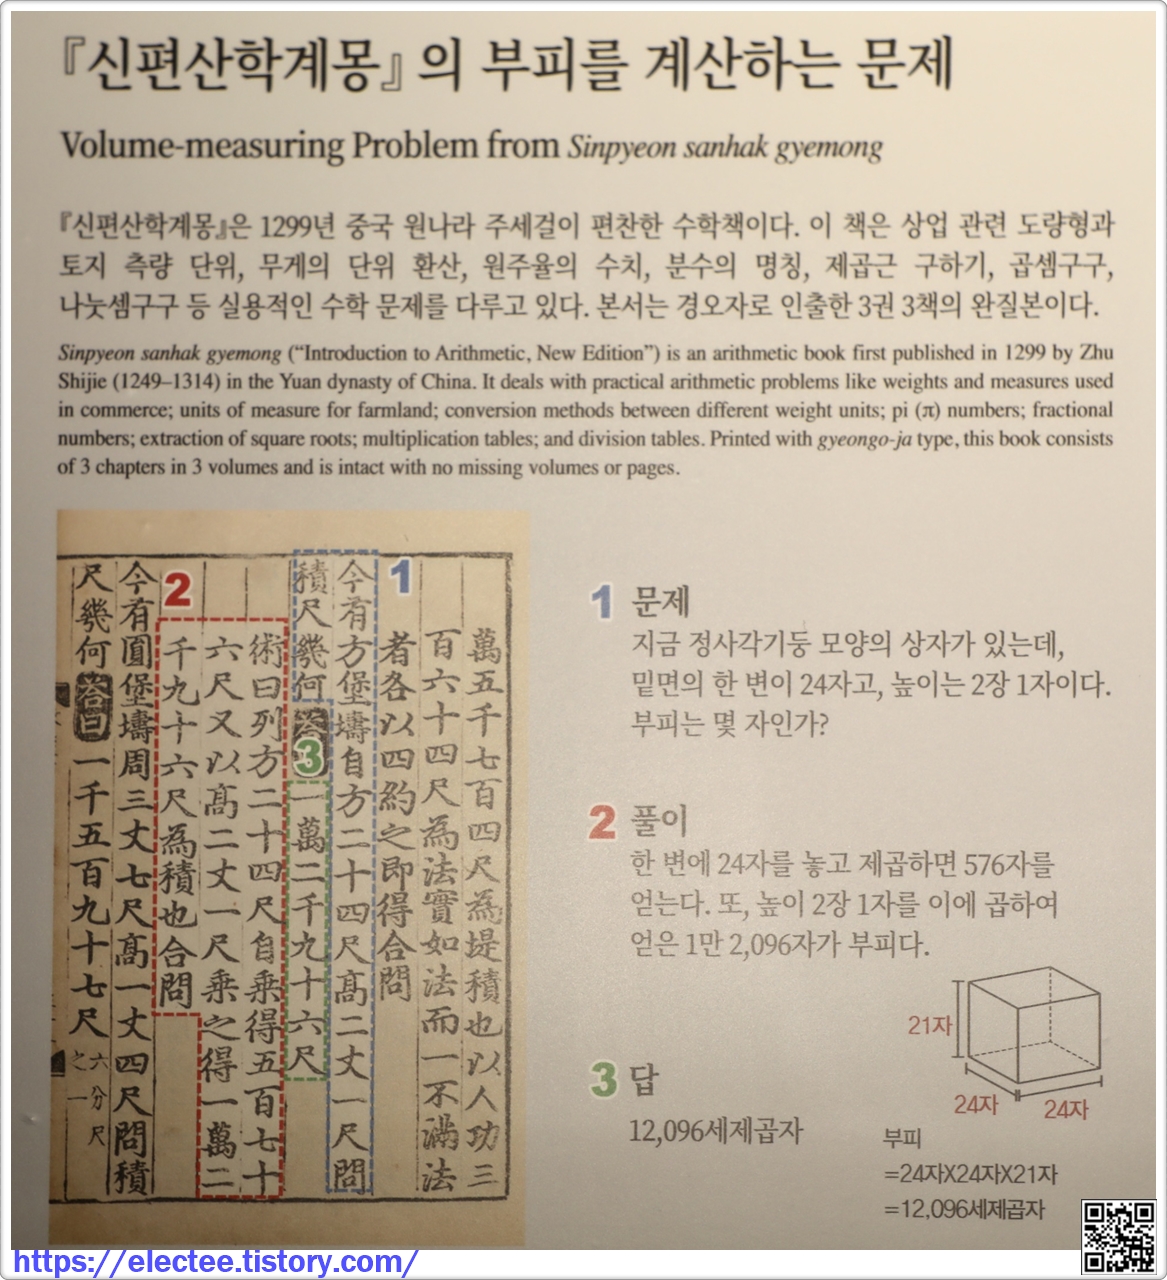 『신편산학계몽』의 부피를 계산하는 문제
Volume-measuring Problem from Sinpyeon sanhak gyemong
『신편산학계몽』은 1299년 중국 원나라 주세걸이 편찬한 수학책이다. 이 책은 상업 관련 도량형과
토지 측량 단위, 무게의 단위 환산, 원주율의 수치, 분수의 명칭, 제곱근 구하기, 곱셈구구,
나눗셈구구 등 실용적인 수학 문제를 다루고 있다. 본서는 경오자로 인출한 3권 3책의 완질본이다.
Sinpyeon sanhak gyemong (“Introduction to Arithmetic, New Edition”) is an arithmetic book first published in 1299 by Zhu
Shijie (1249–1314) in the Yuan dynasty of China. It deals with practical arithmetic problems like weights and measures used
in commerce; units of measure for farmland; conversion methods between different weight units; pi (π) numbers; fractional
numbers; extraction of square roots; multiplication tables; and division tables. Printed with gyeongo-ja type, this book consists
of 3 chapters in 3 volumes and is intact with no missing volumes or pages.
萬五千七百四尺為堤積也以人功三
百六十四尺為法實如法而一不滿法
者各以四約之即得合問
1
今有方堡壔自方二十四尺髙二丈一尺問
積尺幾何
3
一萬二千九十六尺
術曰列方二十四尺自乗得五百七十
六尺又以髙二丈一尺乗之得一萬二
2
千九十六尺為積也合問
今有圓堡壔周三丈七尺髙一丈四尺問積
尺幾何 答曰 一千五百九十七尺 六分尺之一
1 문제
지금 정사각기둥 모양의 상자가 있는데,
밑면의 한 변이 24자고, 높이는 2장 1자이다.
부피는 몇 자인가?
2 풀이
한 변에 24자를 놓고 제곱하면 576자를
얻는다. 또, 높이 2장 1자를 이에 곱하여
얻은 1만 2,096자가 부피다.
3 답
12,096세제곱자
21자
24자
24자
부피
=24자X24자X21자
=12,096세제곱자
https://electee.tistory.com/